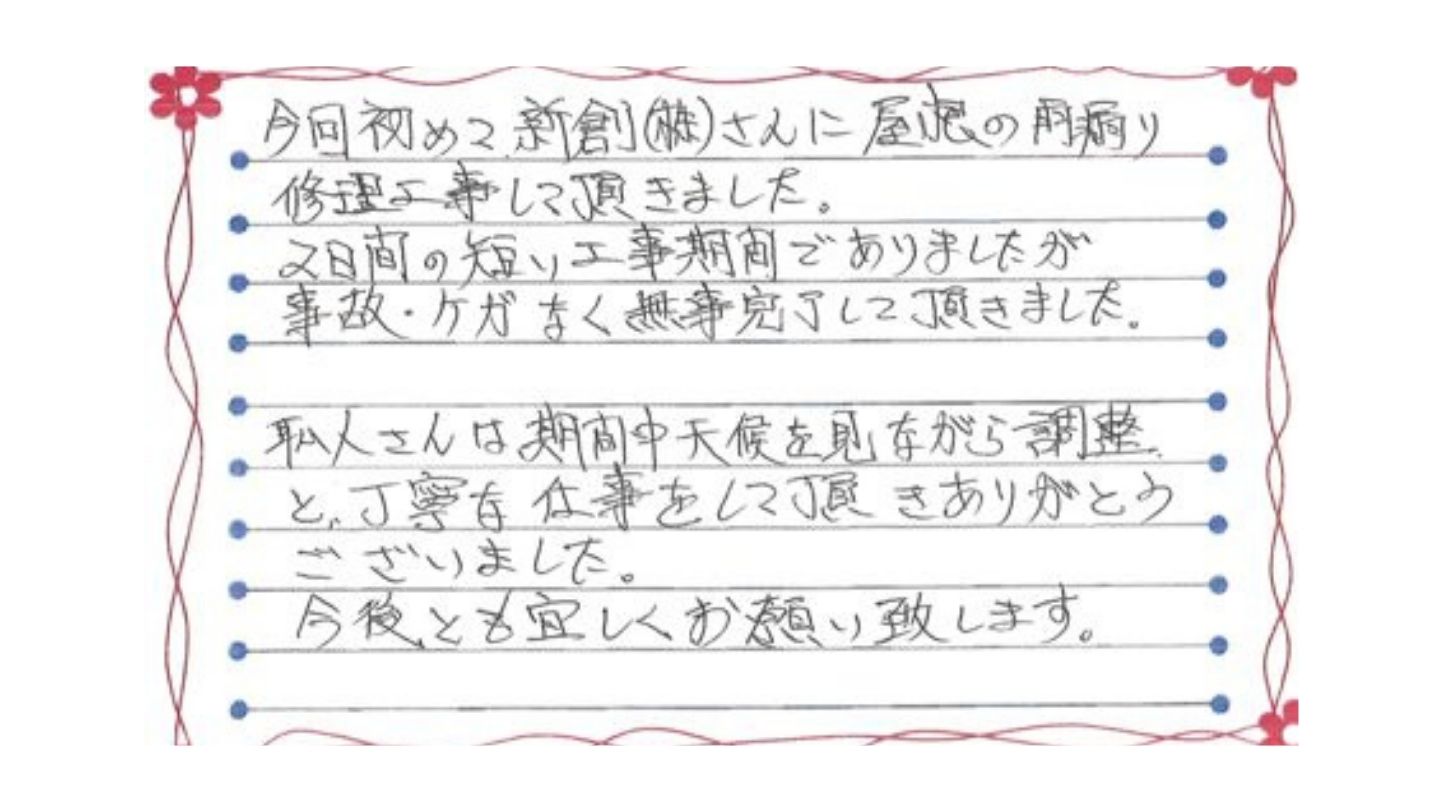 今回初めて新創(株)さんに屋根の雨漏り
修理工事して頂きました。
2日間の短い工事期間でありましたが
事故・ケガなく無事完了して頂きました。
職人さんは期間中天候を見ながら調整
と、丁寧な仕事をして頂きありがとう
ございました。
今後とも宜しくお願い致します。